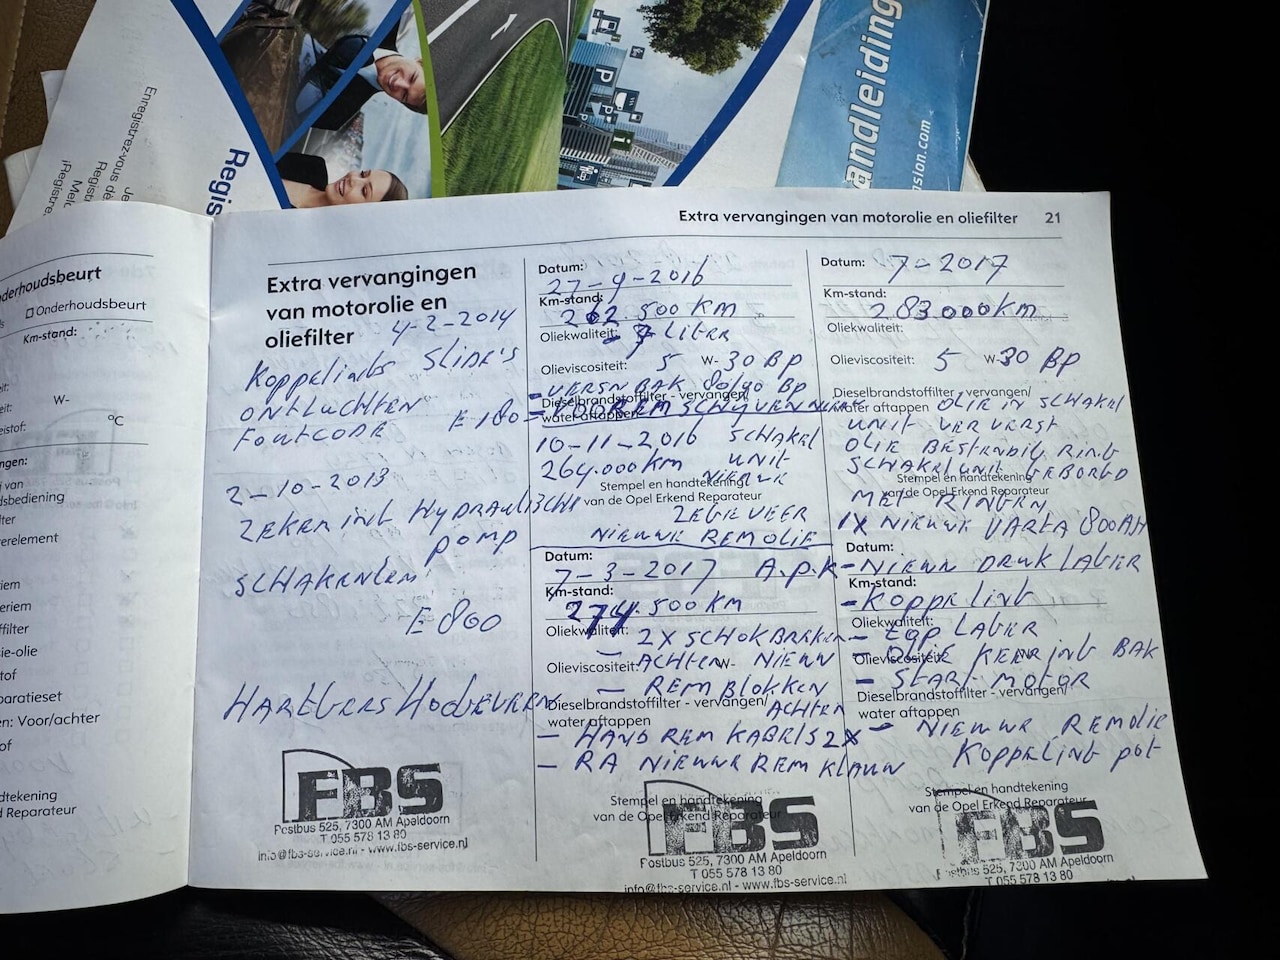 andleiding
asion.com
Enregistrez-vous dè
Regis
Extra vervangingen van motorolie en oliefilter 21
derhoudsbeurt
Onderhoudsbeurt
Km-stand:
W-
°C
ngen:
van
dsbediening
lter
erelement
riem
eriem
filter
sie-olie
tof
paratieset
en: Voor/achter
of
dtekening
d Reparateur
Extra vervangingen
van motorolie en
oliefilter 4-2-2014
KOPPELINGS SLIDE'S
ONTLUCHTEN
FOUTCODE E180
2-10-2013
ZEKERING HYDRAULISCHE
POMP
SCHAKELEN
E 800
HARTGERS HOGEVEEN
FBS
Postbus 525, 7300 AM Apeldoorn
T 055 578 13 80
info@fbs-service.nl - www.fbs-service.nl
Datum:
27-9-2016
Km-stand:
262.500 KM
Oliekwaliteit: LITER
Olieviscositeit: 5 W-30 Bp
- VERSN BAK 80/90 Bp
Dieselbrandstoffilter - vervangen/
water aftappen
- VOOR REMSCHYVEN
10-11-2016 SCHAKEL
264.000KM UNIT
NIEUWE
Stempel en handtekening
van de Opel Erkend Reparateur
NIEUWE REMOLIE
Datum:
7-3-2017 A.P.K
Km-stand:
274.500 KM
Oliekwaliteit: 2X SCHOKBREKER
Olieviscositeit: ACHTER W- NIEUW
- REMBLOKKEN
Dieselbrandstoffilter - vervangen/
water aftappen ACHTER
- HAND REM KABELS 2X
- RA NIEUWE REM KLAUW
Stempel en handtekening
van de Opel Erkend Reparateur
FBS
Postbus 525, 7300 AM Apeldoorn
T 055 578 13 80
info@fbs-service.nl - www.fbs-service.nl
Datum: 7-2017
Km-stand:
283000KM
Oliekwaliteit:
Olieviscositeit: 5 W-30 BP
Dieselbrandstoffilter - vervangen/
water aftappen OLIE IN SCHAKEL
UNIT VERVERST
OLIE BESTENDIG RING
SCHAKELUNIT GEBORGD
Stempel en handtekening
van de Opel Erkend Reparateur
MET RINGEN
1X NIEUWE VARTA 800AH
Datum:
- NIEUW DRUKLAGER
Km-stand:
- KOPPELING
Oliekwaliteit:
- LAGER
Olieviscositeit:
- OLIE KEERING BAK
- START MOTOR
Dieselbrandstoffilter - vervangen/
water aftappen
- NIEUWE REMOLIE
KOPPELING POT
Stempel en handtekening
van de Opel Erkend Reparateur
FBS
Postbus 525, 7300 AM Apeldoorn
T 055 578 13 80